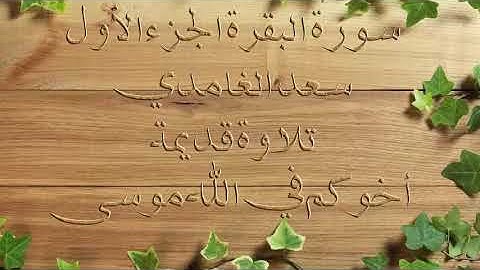 سورة البقرة الجزء الأول
سعد الغامدي
تلاوة قديمة
أخوكم في الله موسى